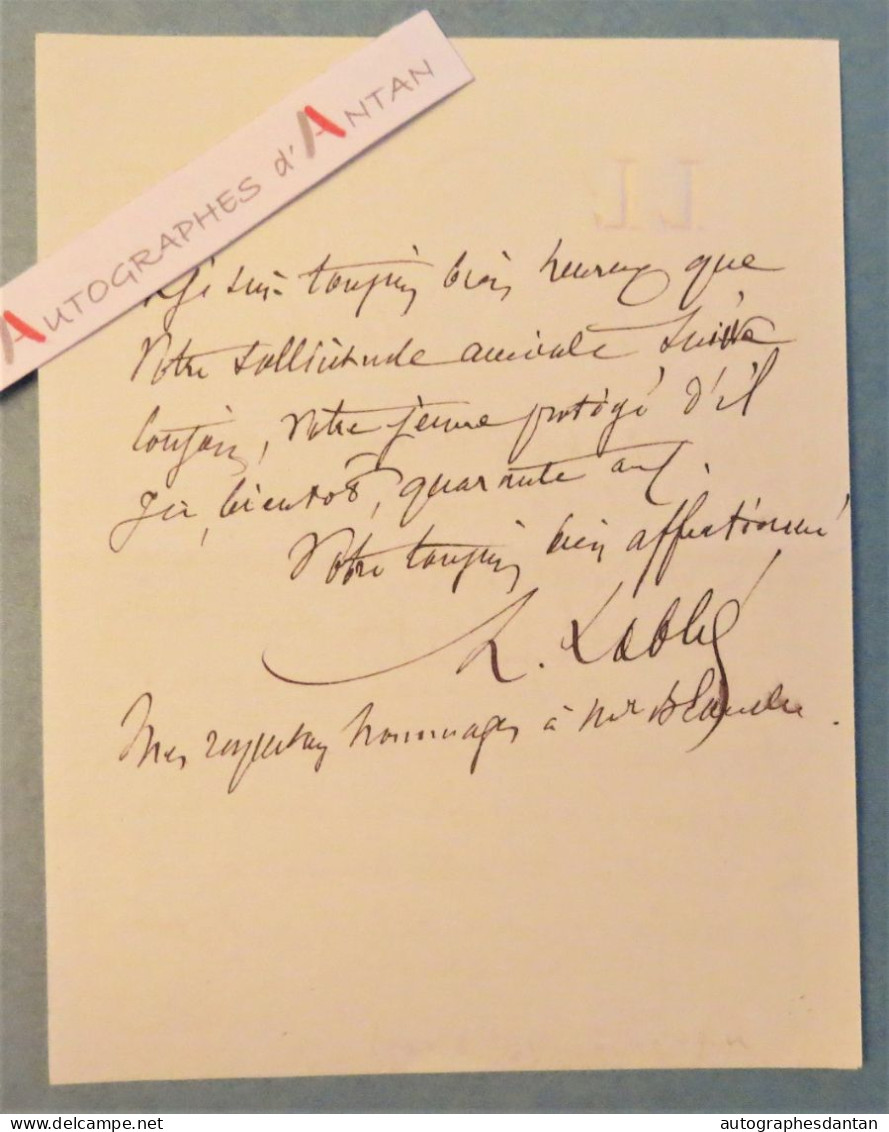 AUTOGRAPHES d'ANTAN
LL
Je suis toujours bien heureux que
Votre sollicitude amicale suive
toujours, votre jeune protégé d'il
y a, bientôt, quarante ans.
Votre toujours bien affectionné
L. Labbé
Mes respectueux hommages à Blanche.
delcampe.net
autographesdantan